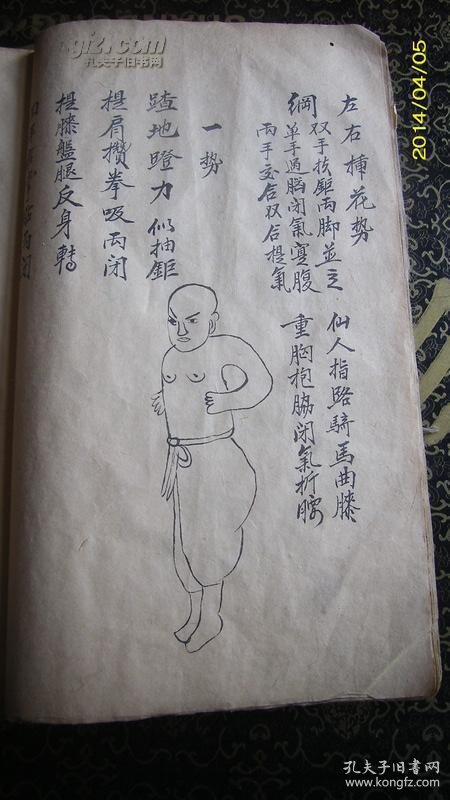 左右揷花势
双手扶鉅两脚並立
仙人指路騎馬曲膝
綱
单手過脳闭氣寔腹
两手交合双合提氣
重胸抱脇闭氣折腰
一势
蹅地蹬力似抽鉅
提肩攒拳吸両闭
提膝盤腿反身轉
2014/04/05
孔夫子旧书网
孔夫子旧书网
www.kongfz.com